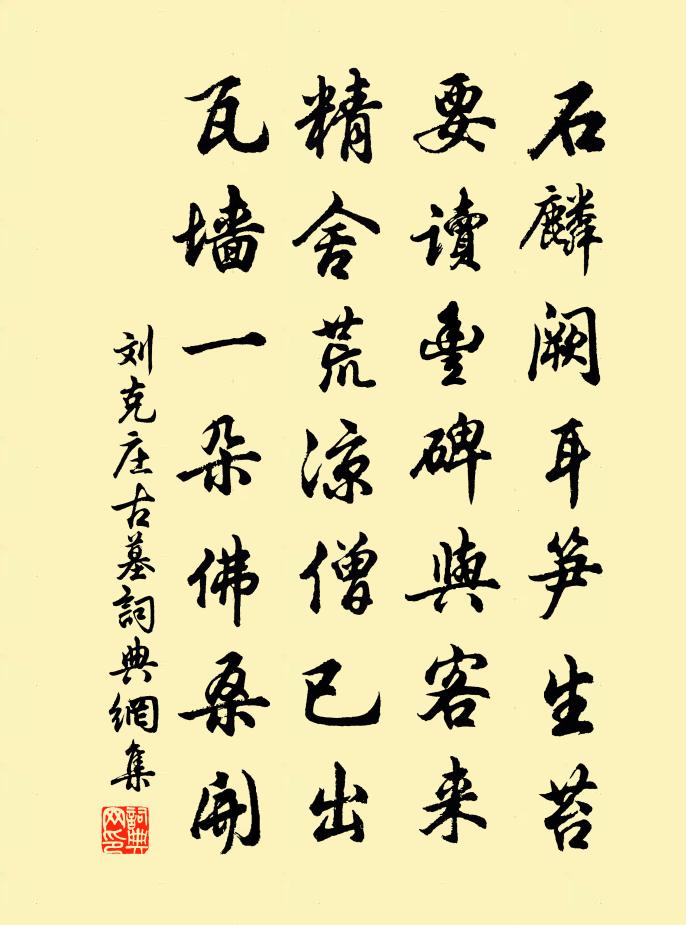 石麟闕耳笋生苔
要讀豊碑與客来
精舍荒涼僧已出
瓦墙一朵佛桑開
刘克庄古墓詞典網集
詞典网印